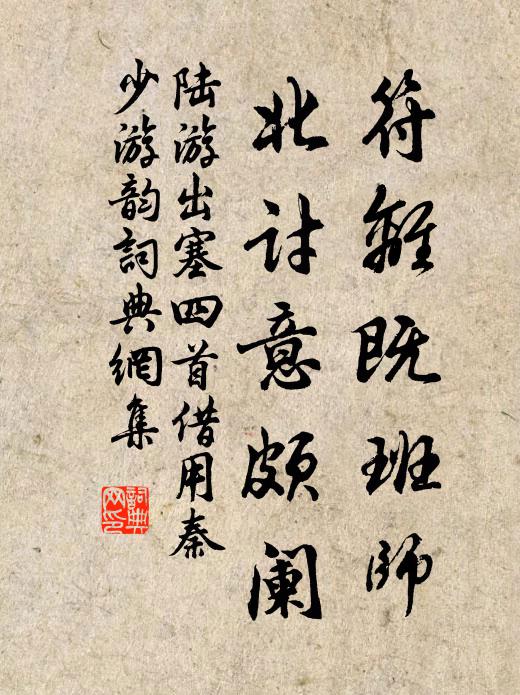 符離既班師
北討意頗阑
陆游出塞四首借用秦
少游韵詞典網集
詞典
网印